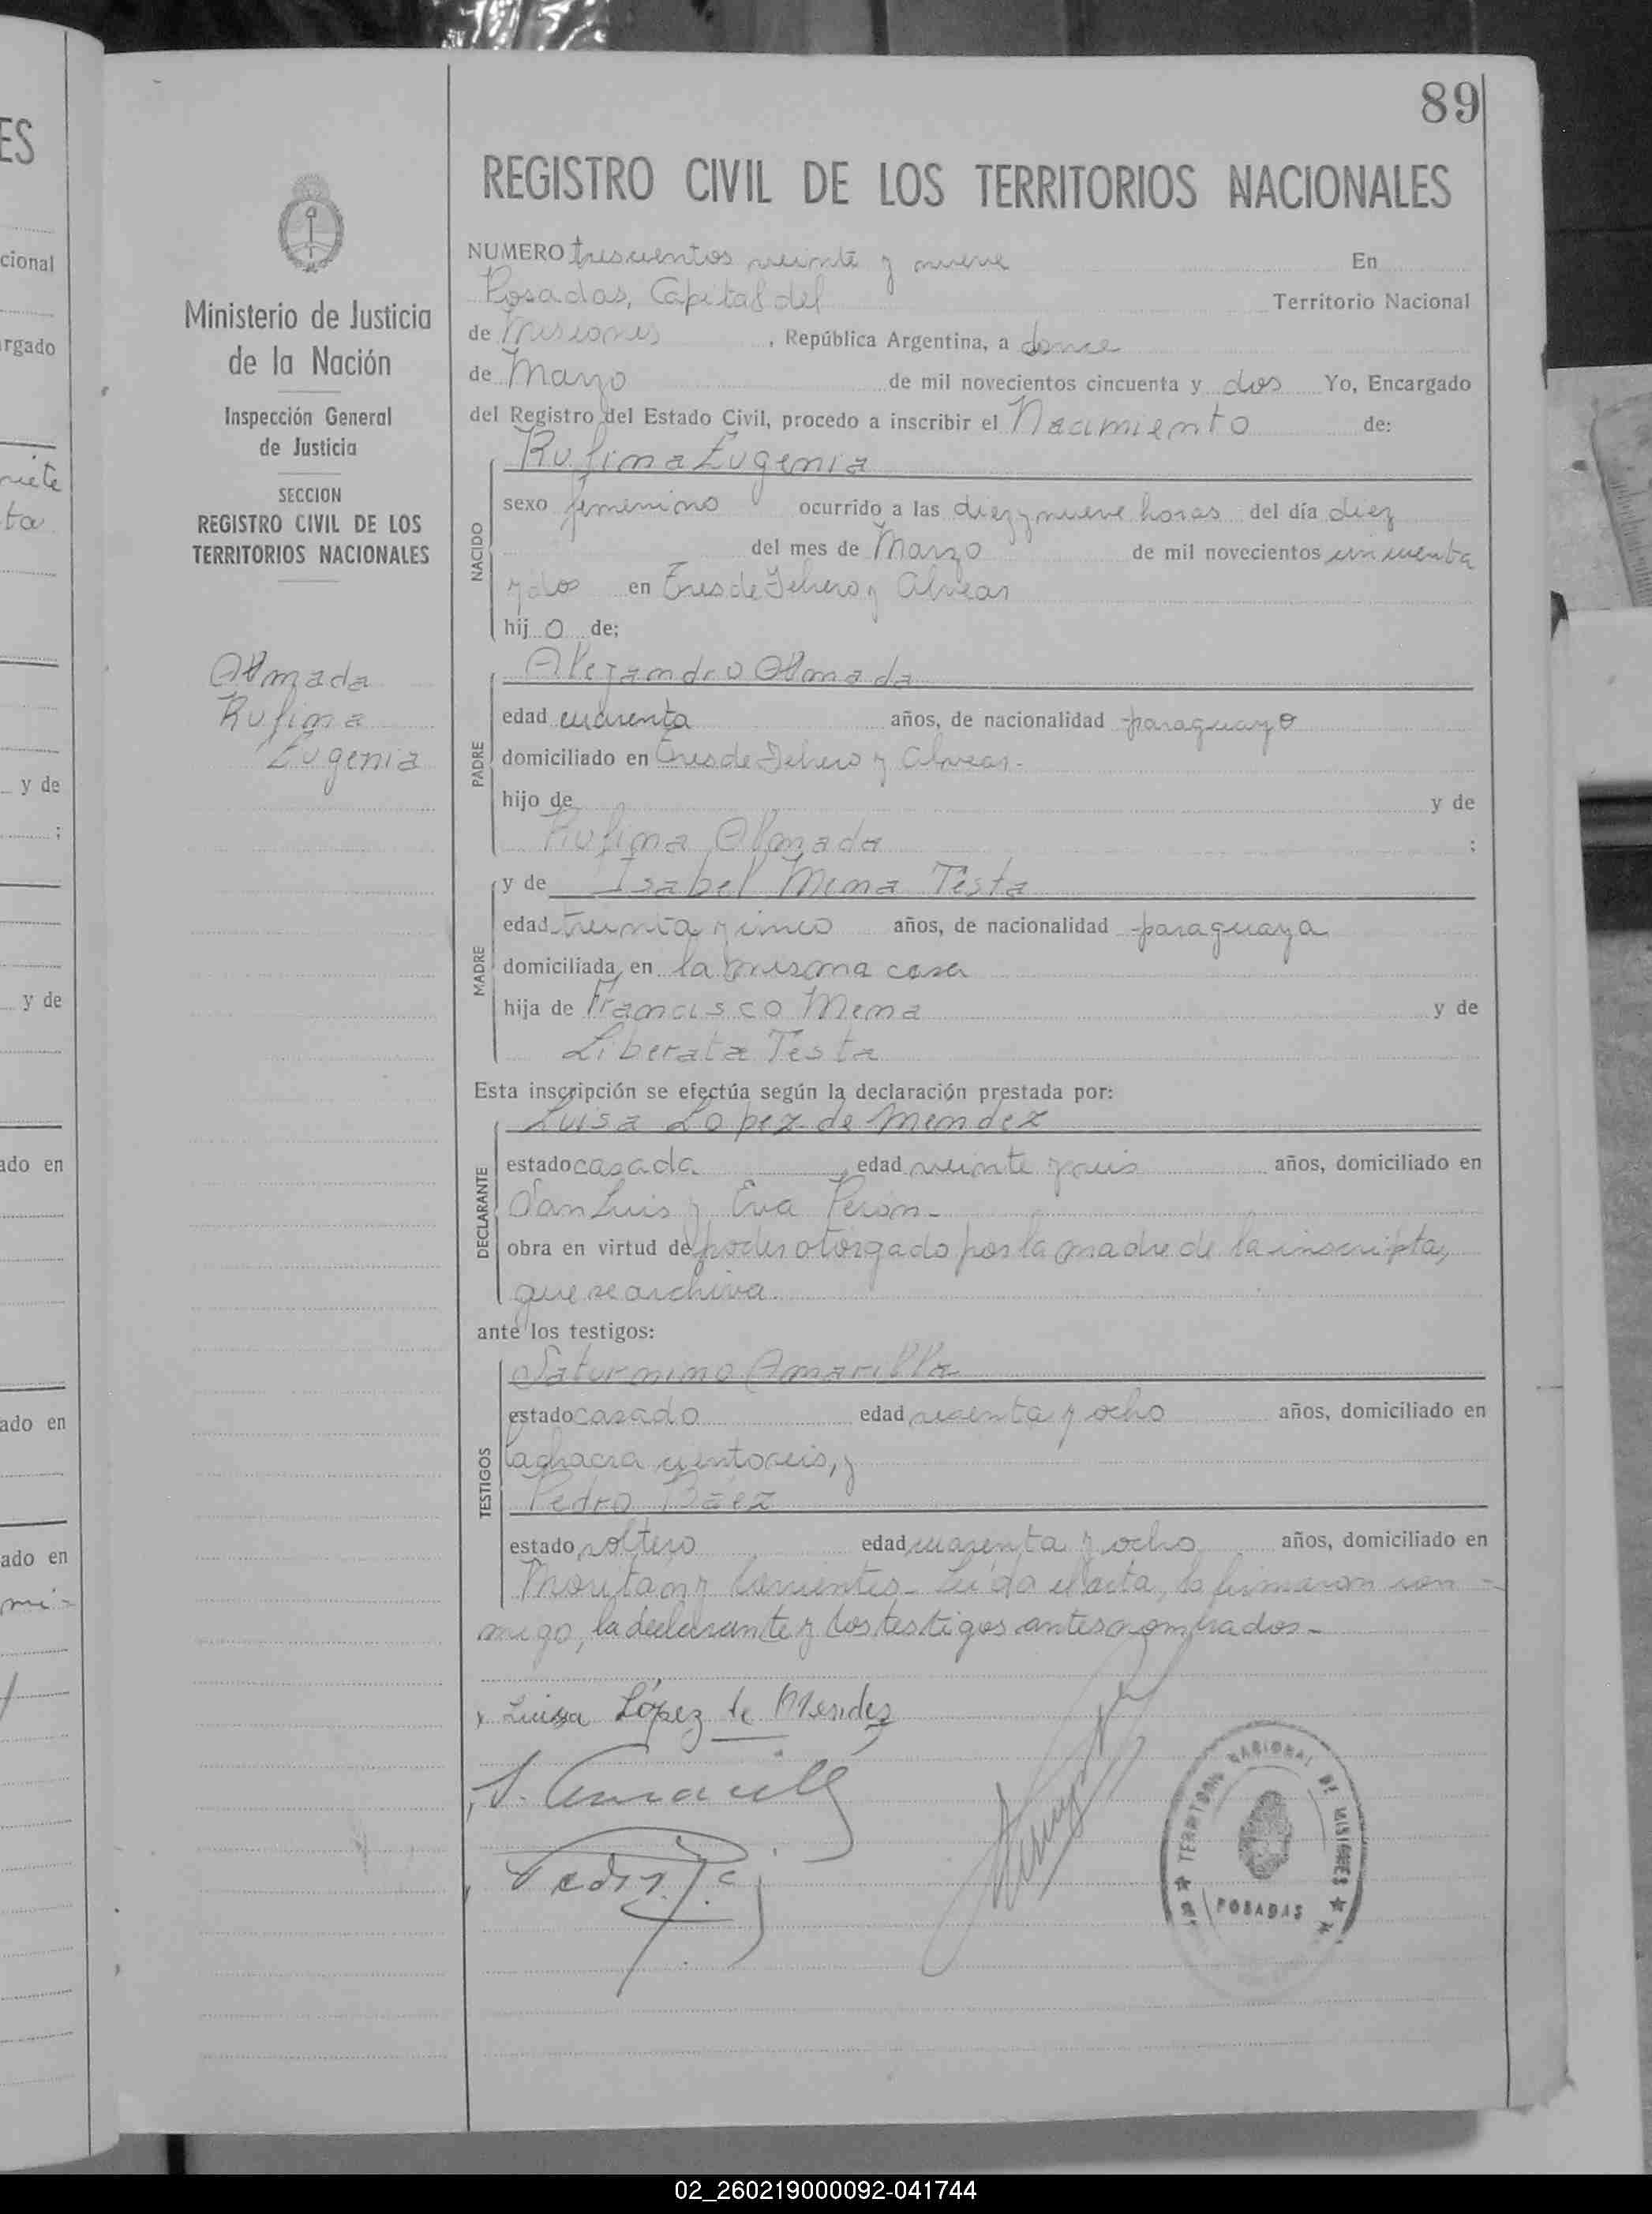 ES
cional
rgado
y de
;
y de
ado en
ado en
ado en
89
REGISTRO CIVIL DE LOS TERRITORIOS NACIONALES
Ministerio de Justicia
de la Nación
Inspección General
de Justicia
SECCION
REGISTRO CIVIL DE LOS
TERRITORIOS NACIONALES
Almada
Rufina
Eugenia
NUMERO trescientos veinte y nueve En
Posadas, Capital del Territorio Nacional
de Misiones, República Argentina, a doce
de Marzo de mil novecientos cincuenta y dos Yo, Encargado
del Registro del Estado Civil, procedo a inscribir el Nacimiento de:
NACIDO
Rufina Eugenia
sexo femenino ocurrido a las diez y nueve horas del día diez
del mes de Marzo de mil novecientos cincuenta
y dos en Tres de Febrero y Alvear
hij o de;
PADRE
Alejandro Almada
edad cuarenta años, de nacionalidad paraguayo
domiciliado en Tres de Febrero y Alvear.
hijo de y de
Rufina Almada ;
MADRE
y de Isabel Mena Testa
edad treinta y cinco años, de nacionalidad paraguaya
domiciliada en la misma casa
hija de Francisco Mena y de
Liberata Testa
Esta inscripción se efectúa según la declaración prestada por:
DECLARANTE
Luisa Lopez de Mendez
estado casada edad veinte y seis años, domiciliado en
San Luis y Eva Perón.-
obra en virtud de poder otorgado por la madre de la inscripta,
que se archiva.
ante los testigos:
TESTIGOS
Saturnino Amarilla
estado casado edad sesenta y ocho años, domiciliado en
la chacra ciento seis, y
Pedro Báez
estado soltero edad cuarenta y ocho años, domiciliado en
Moritan y Corrientes.- Leída el acta, la firmaron con-
migo, la declarante y los testigos antes nombrados.-
x Luisa López de Mendez
S. Amarilla
Pedro
TERRITORIO NACIONAL DE MISIONES
POSADAS
02_260219000092-041744